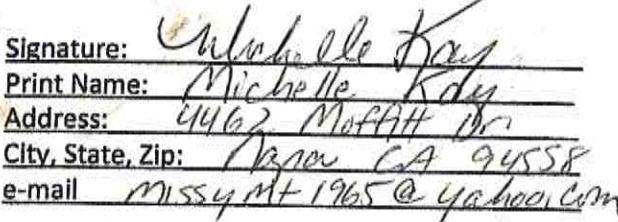 Signature: Michelle Kay
Print Name: Michelle Kay
Address: 4462 Moffitt Dr
City, State, Zip: Napa CA 94558
e-mail missymt1965@yahoo.com